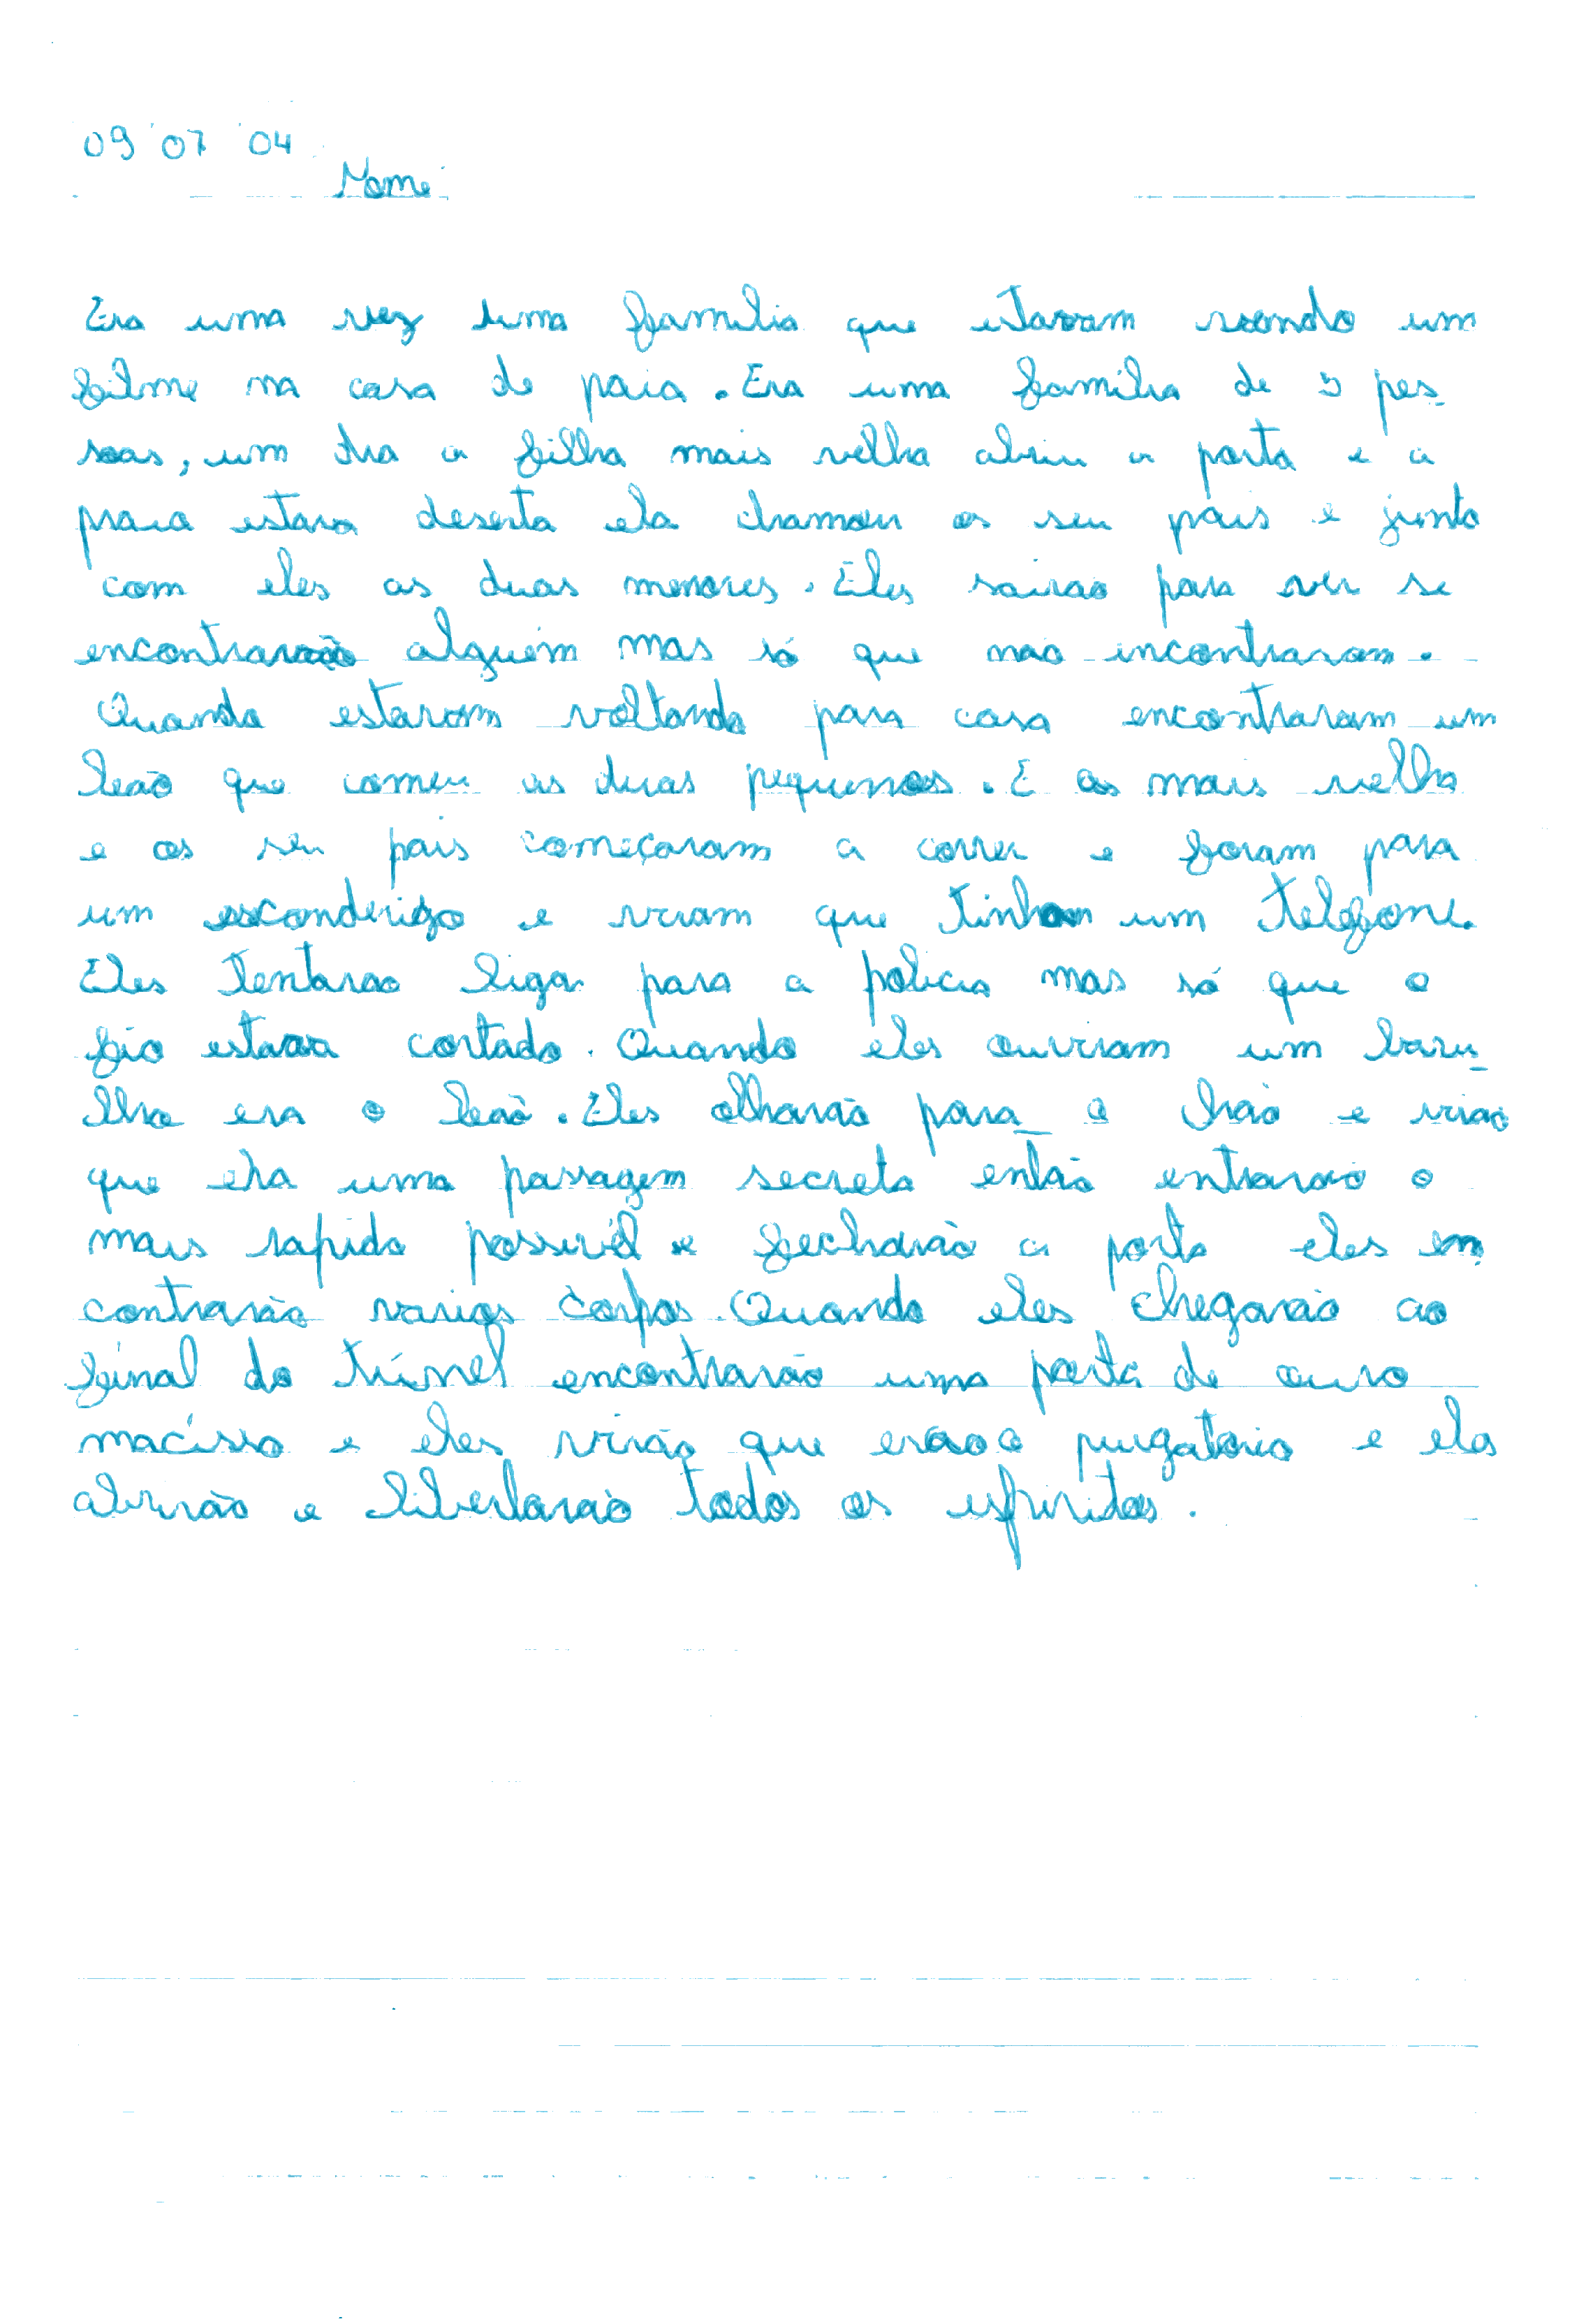 09 07 04
Nome
Era uma vez uma familia que estavam vendo um
filme na casa de paia. Era uma familia de 5 pes-
soas, um dia a filha mais velha abriu a porta e a
praia estava deserta ela chamou os seu pais e junto
com eles as duas menores. Eles sairao para ver se
encontrarão alguém mas só que não incontraram.
Quando estavam voltando para casa encontraram um
leão que comeu as duas pequenas. E as mais velha
e os seu pais começaram a correr e foram para
um esconderigo e viram que tinham um telefone.
Eles tentarao liga para a policia mas só que o
fio estava cortado. Quando eles ouviram um baru-
lho era o leão. Eles olharão para o chão e virão
que era uma passagem secreta então entrarão o
mais rapido possivél e fecharão a porta eles en
contrarão varios corpos. Quando eles chegarão ao
final do túnel encontrarão uma porta de ouro
macisso e eles virão que era o purgatorio e eles
abrirão e libertarão todos os espiritos.